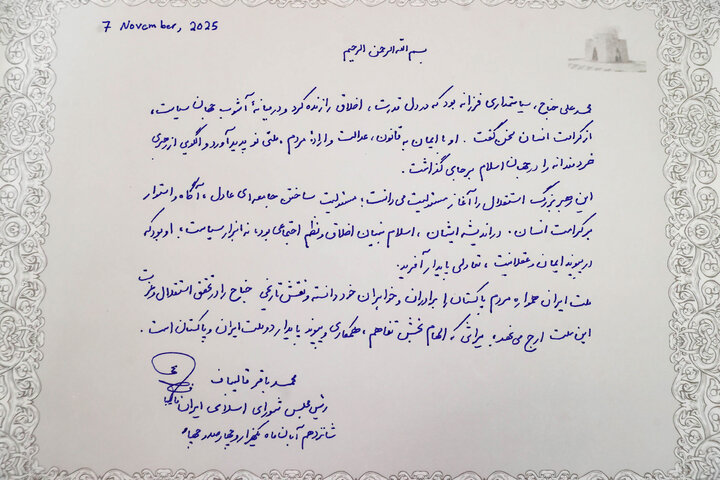 7 November, 2025
بسم الله الرحمن الرحیم
محمدعلی جناح، سیاستمداری فرزانه بود که در دل قدرت، اخلاق را زنده کرد و در میانهٔ آشوب جهان سیاست،
از کرامت انسان سخن گفت. او با ایمان به قانون، عدالت و ارادهٔ مردم، ملتی نو پدید آورد و الگویی از رهبری
خردمندانه را در جهان اسلام برجای گذاشت.
این رهبر بزرگ استقلال را آغاز مسئولیت می‌دانست؛ مسئولیت ساختن جامعه‌ای عادل، آگاه و استوار
بر کرامت انسان. در اندیشه ایشان، اسلام بنیان اخلاق و نظم اجتماعی بود، نه ابزار سیاست؛ او بود که
در پیوند ایمان و عقلانیت، تعادلی پایدار آفرید.
ملت ایران همواره مردم پاکستان را برادران و خواهران خود دانسته و نقش تاریخی جناح را در تحقق استقلال و عزت
این ملت ارج می‌نهد؛ میراثی که الهام بخش تفاهم، همکاری و پیوند پایدار دو ملت ایران و پاکستان است.
محمد باقر قالیباف
رئیس مجلس شورای اسلامی ایران
شانزدهم آبان ماه یکهزار و چهارصد و چهار